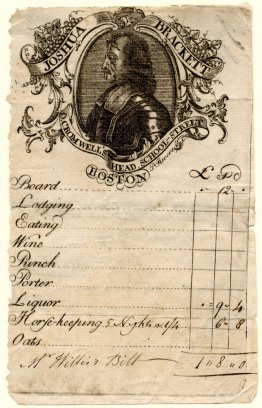 JOSHUA BRACKETT
O. CROMWELLS HEAD SCHOOL STREET
BOSTON
£ S d
Board 12
Lodging
Eating
Wine
Punch
Porter
Liquor 9 4
Horse-keeping 5 Nights a 1/4 6 8
Oats
Mr Bill 1 8 0